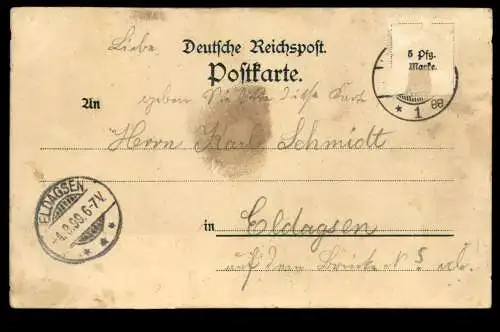 Deutsche Reichspost.
Postkarte.
5 Pfg.
Marke.
* 1
Liebe
geben Sie bitte diese Karte
An
Herrn Karl Schmidt
ELDAGSEN
6-7N.
in Eldagsen
auf dem Brücke N 5 ab.